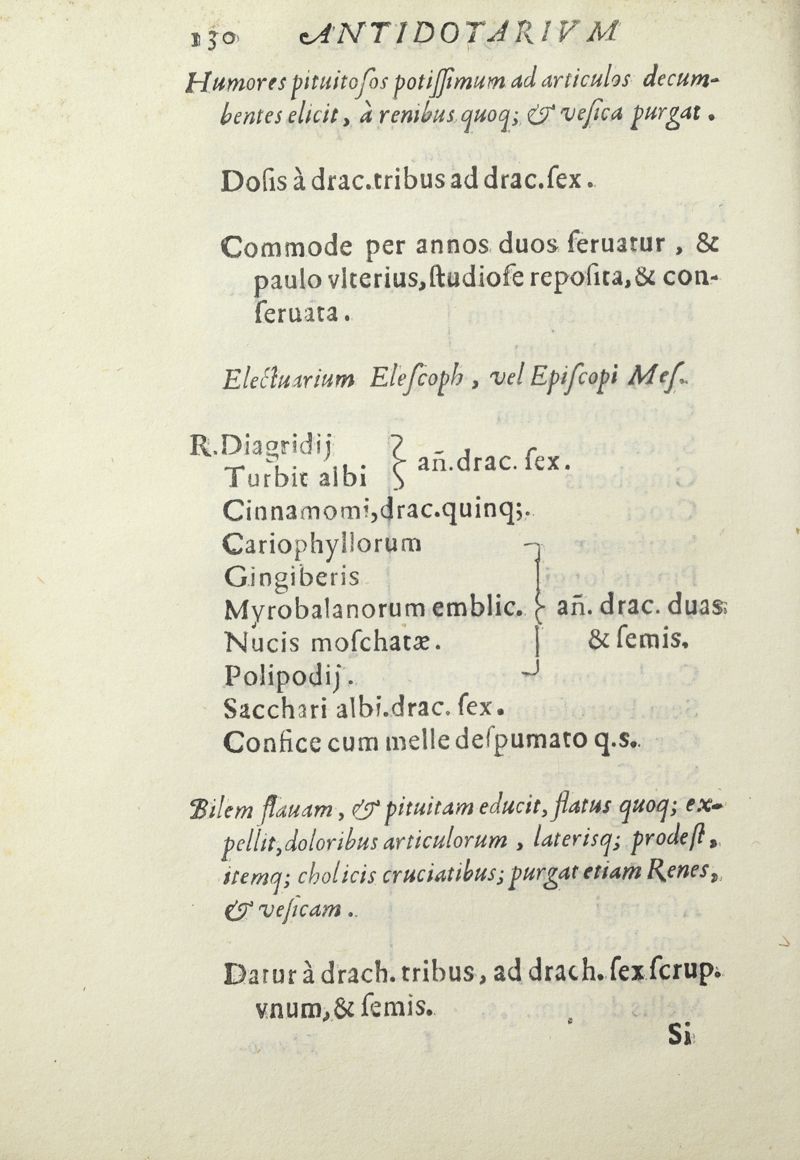 130 ANTIDOTARIVM
Humores pituitoſos potiſſimum ad articulos decum-
bentes elicit, à renibus quoq; & veſica purgat.
Doſis à drac.tribus ad drac.ſex.
Commode per annos duos ſeruatur, &
paulo vlterius,ſtudioſe repoſita,& con-
ſeruata.
Electuarium Eleſcoph, vel Epiſcopi Meſ.
R.Diagridij
Turbit albi } añ.drac. ſex.
Cinnamomi,drac.quinq;.
Cariophyllorum
Gingiberis
Myrobalanorum emblic. } añ. drac. duas
Nucis moſchatæ. & ſemis.
Polipodij.
Sacchari albi.drac. ſex.
Confice cum melle deſpumato q.s.
Bilem flauam, & pituitam educit, flatus quoq; ex-
pellit,doloribus articulorum, laterisq; prodeſt,
itemq; cholicis cruciatibus; purgat etiam Renes,
& veſicam.
Datur à drach. tribus, ad drach. ſex ſcrup.
vnum,& ſemis.
Si